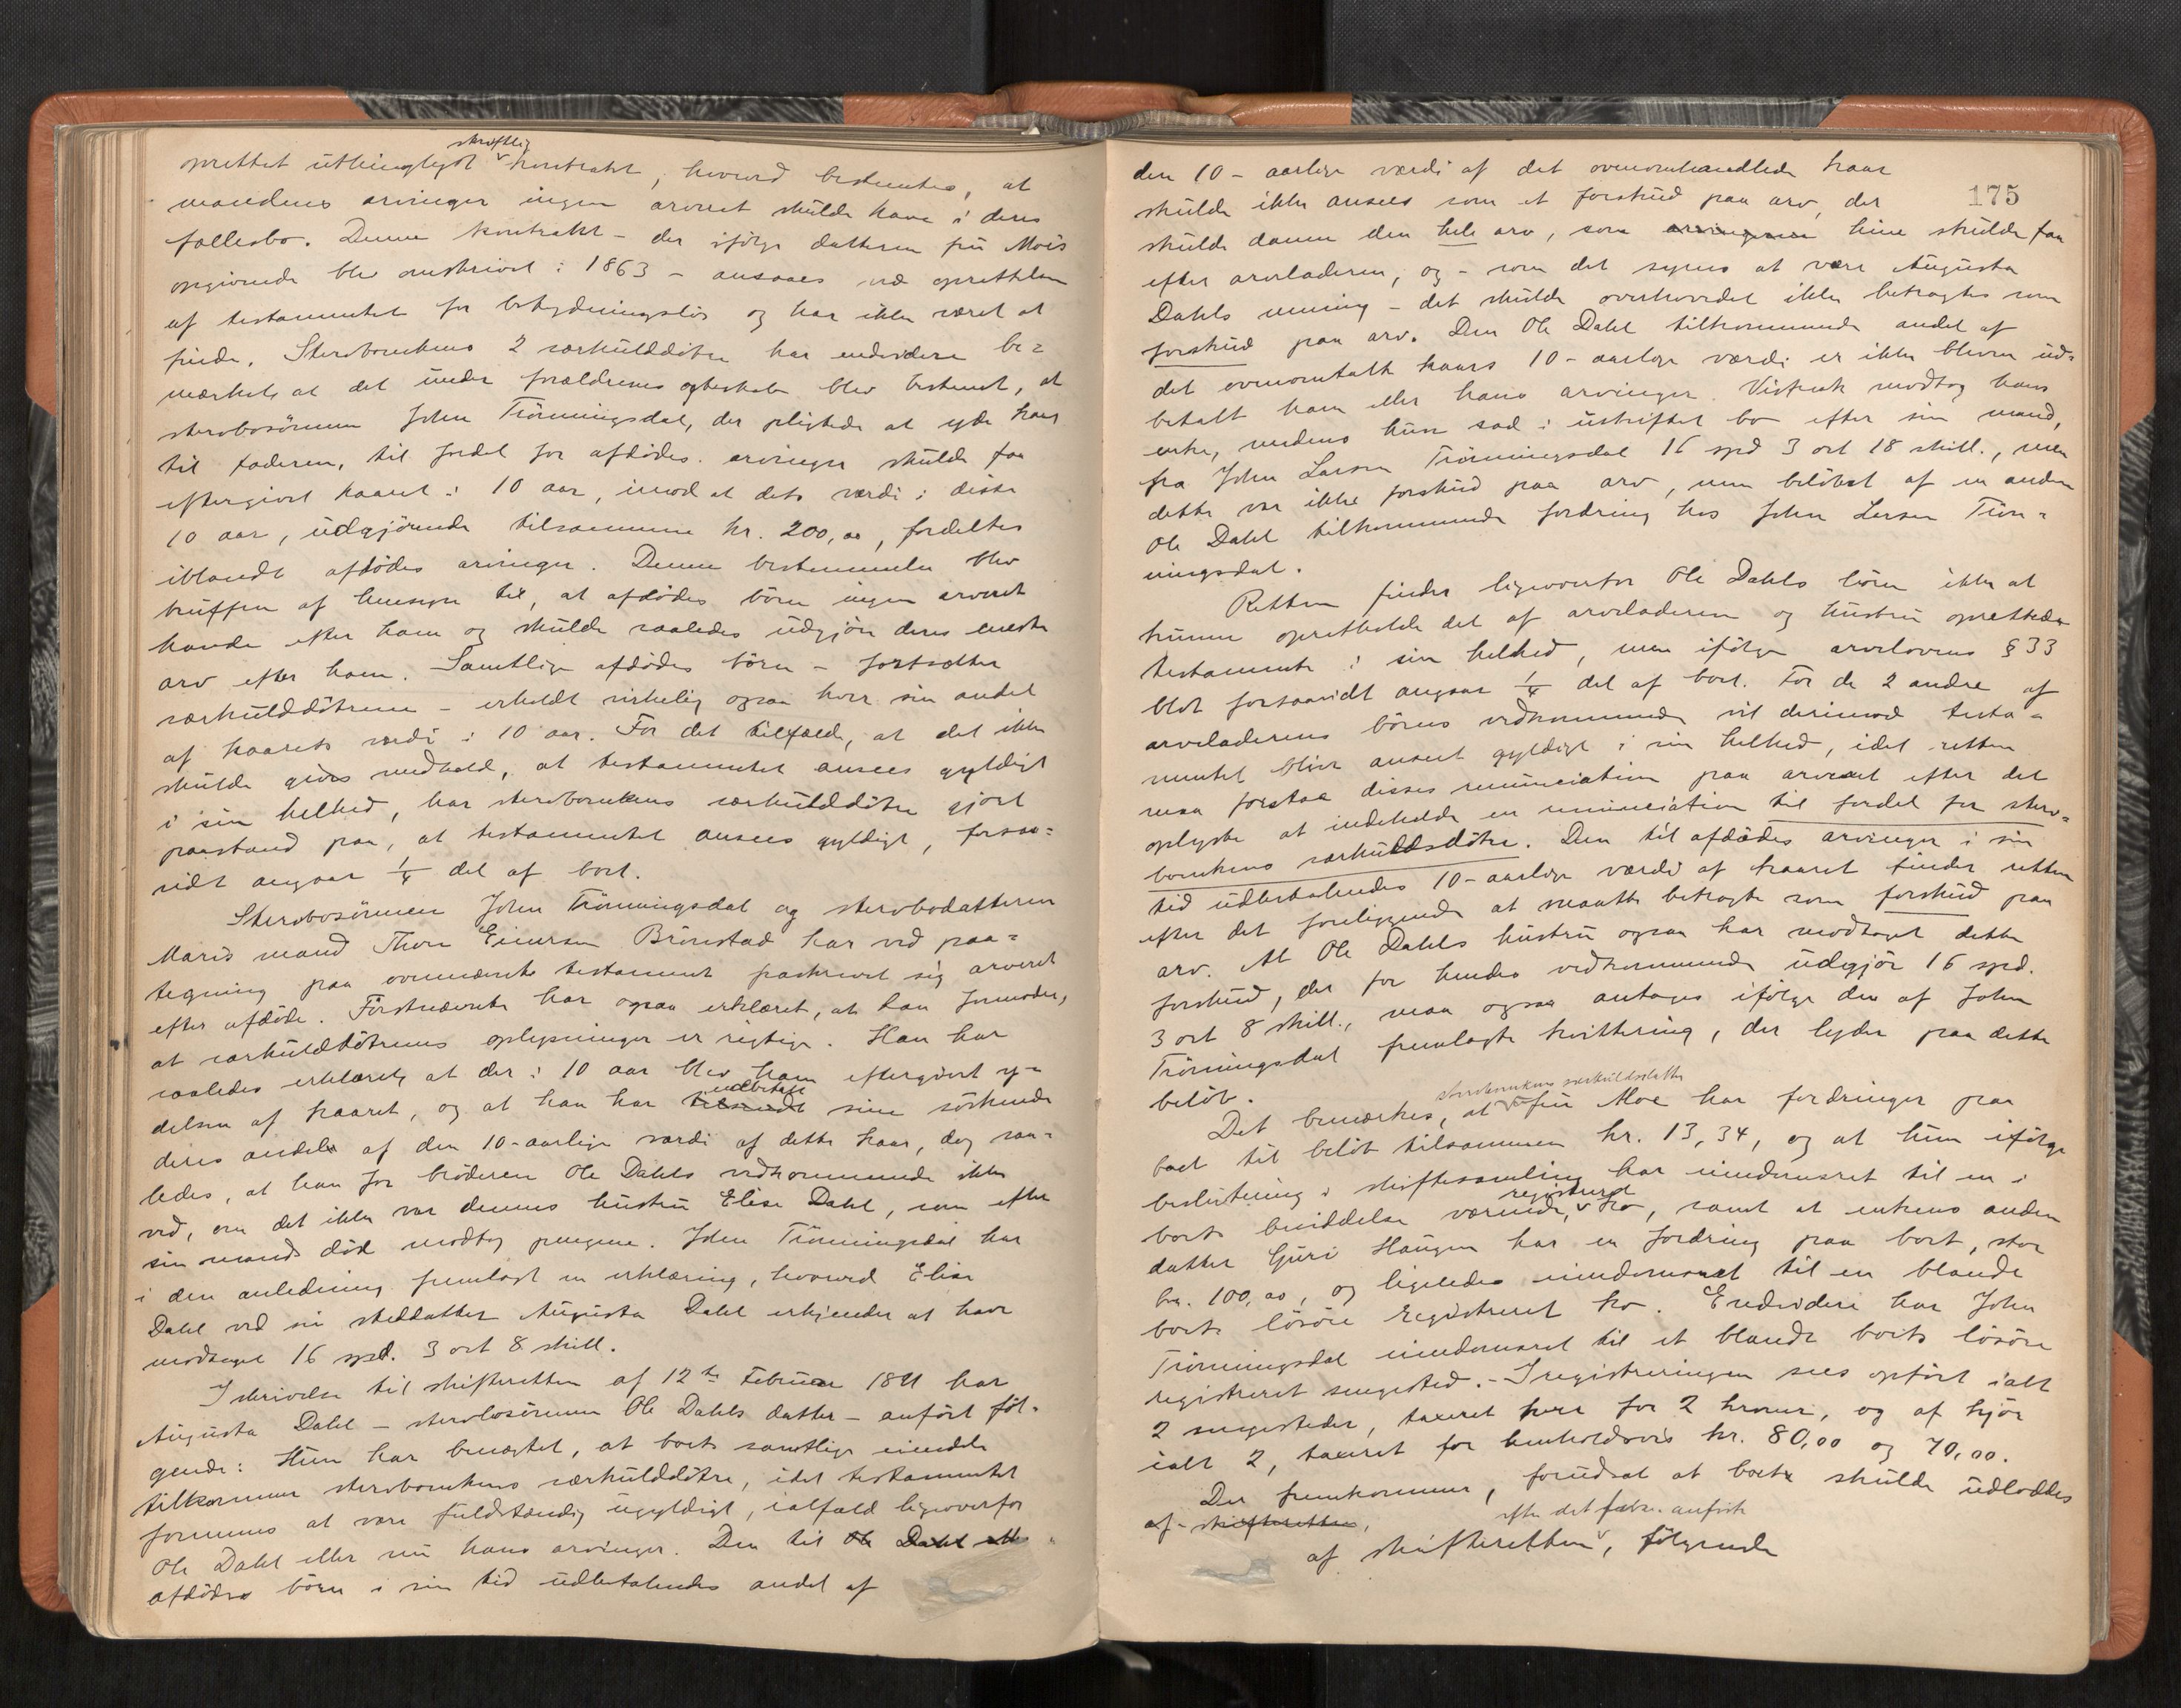 oprettet uthinglyst skriftlig kontrakt, hvorved bestemtes, at
mandens arvinger ingen arveret skulde have i deres
fællesbo. Denne kontrakt - der ifølge datteren fru Moes
opgivende blev omskrevet i 1863 - ansaaes ved oprettelsen
af testamentet for betydningsløs og har ikke været at
finde. Sterboenkens 2 særkulddötre har endvidere be=
mærket, at det under forældrenes egteskab blev bestemt, at
sterbosönnen John Trönningsdal, der pligtede at yde kaar
til faderen, til fordel for afdödes arvinger skulde faa
eftergivet kaaret i 10 aar, imod at dets værdi i disse
10 aar, udgjörende tilsammen kr. 200,00, fordeltes
iblandt afdödes arvinger. Denne bestemmelse blev
truffen af hensyn til, at afdödes börn ingen arveret
havde efter ham og skulde saaledes udgjöre deres eneste
arv efter ham. Samtlige afdödes börn - fortsætter
særkulddötrene - erholdt virkelig ogsaa hver sin andel
af kaarets værdi i 10 aar. For det tilfælde, at det ikke
skulde gives medhold, at testamentet ansees gyldigt
i sin helhed, har sterboenkens særkulddötre gjort
paastand paa, at testamentet ansees gyldigt, forsaa=
vidt angaar 1/4 del af boet.
Sterbosönnen John Trönningsdal og sterbodatteren
Maris mand Thore Einersen Brönstad har ved paa=
tegning paa ovennævnte testament fraskrevet sig arveret
efter afdöde. Förstnævnte har ogsaa erklæret, at han formoder,
at særkulddötrenes oplysninger er rigtige. Han har
saaledes erklæret, at der i 10 aar blev ham eftergivet y=
delsen af kaaret, og at han har udbetalt sine söskende
deres andele af den 10-aarlige værdi af dette kaar, dog saa=
ledes, at han for broderen Ole Dahls vedkommende ikke
ved, om det ikke var dennes hustru Elise Dahl, som efter
sin mands död modtog pengene. John Trönningsdal har
i den anledning fremlagt en erklæring, hvorved Elise
Dahl ved sin steddatter Augusta Dahl erkjender at have
modtaget 16 spd. 3 ort 8 skill.
I skrivelse til skifteretten af 12te Februar 1891 har
Augusta Dahl - sterbosönnen Ole Dahls datter - anfört föl=
gende: Hun har benægtet, at boets samtlige eiendele
tilkommer sterboenkens særkulddötre, idet testamentet
formenes at være fuldstændig ugyldigt, ialfald ligeoverfor
Ole Dahl eller nu hans arvinger. Den til Ole Dahl
afdödes börn i sin tid udbetalendes andel af
175
den 10-aarlige værdi af det ovenomhandlede kaar
skulde ikke ansees som et forskud paa arv, der
skulde danne den hele arv, som arvingerne hine skulde faa
efter arveladeren, og - som det synes at være Augusta
Dahls mening - det skulde overhovedet ikke betragtes som
forskud paa arv. Den Ole Dahl tilkommende andel af
det ovenomtalte kaars 10-aarlige værdi er ikke bleven ud=
betalt ham eller hans arvinger. Vistnok modtog hans
enke, medens hun sad i uskiftet bo efter sin mand,
fra John Larsen Trönningsdal 16 spd 3 ort 18 skill., men
dette var ikke forskud paa arv, men belöbet af en anden
Ole Dahl tilkommende fordring hos John Larsen Trön=
ningsdal.
Retten finder ligeoverfor Ole Dahls börn ikke at
kunne opretholde det af arveladeren og hustru oprettede
testamente i sin helhed, men ifölge arvelovens § 33
blot forsaavidt angaar 1/4 del af boet. For de 2 andre af
arveladerens börns vedkommende vil derimod testa=
mentet blive anseet gyldigt i sin helhed, idet retten
maa forstaa disses renunciation paa arveret efter det
oplyste at indeholde en renunciation til fordel for sterbo=
boenkens særkuldsdötre. Den til afdödes arvinger i sin
tid udbetalendes 10-aarlige værdi af kaaret finder retten
efter det foreliggende at maatte betragte som forskud paa
arv. At Ole Dahls hustru ogsaa har modtaget dette
forskud, der for hendes vedkommende udgjör 16 spd.
3 ort 8 skill., maa ogsaa antages ifölge den af John
Trönningsdal fremlagte kvittering, der lyder paa dette
belöb.
Det bemærkes, at sterboenkens særkuldsdatter fru Moe har fordringer paa
boet til belöb tilsammen kr. 13,34, og at hun ifölge
beslutning i skiftesamling har eiendomsret til en i
boets besiddelse værende, registreret ko, samt at enkens anden
datter Guri Haugen har en fordring paa boet, stor
kr. 100,00, og ligeledes eiendomsret til en blandt
boets lösöre registreret ko. Endvidere har John
Trönningsdal eiendomsret til et blandt boets lösöre
registreret sengested. - I registreringen sees opfört ialt
2 sengesteder, taxeret hver for 2 kroner, og af kjör
ialt 2, taxeret for henholdsvis kr. 80,00 og 70,00.
Der fremkommer, forudsat at boet skulde udloddes
af skifteretten,
af skifteretten efter det foran anförte, fölgende